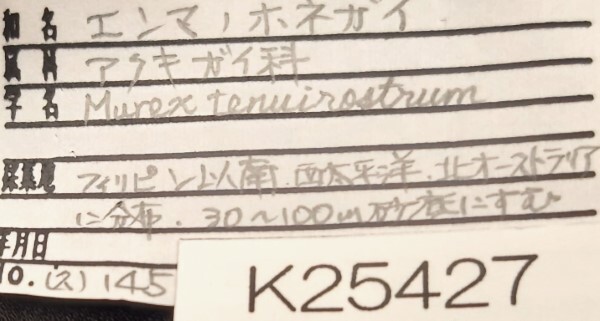 和名 エンマノホネガイ
属科 アクキガイ科
学名 Murex tenuirostrum
採集地 フィリピン以南.西太平洋.北オーストラリア
に分布.30〜100m砂底にすむ
年月日
No.(ス)145
K25427